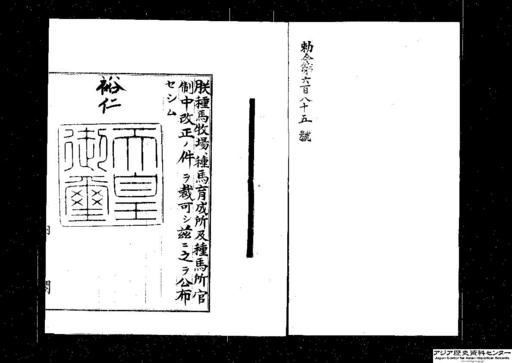 勅令第六百八十五號
朕種馬牧場、種馬育成所及種馬所官
制中改正ノ件ヲ裁可シ茲ニ之ヲ公布
セシム
裕仁
天皇
御璽
内閣
アジア歴史資料センター
Japan Center for Asian Historical Records